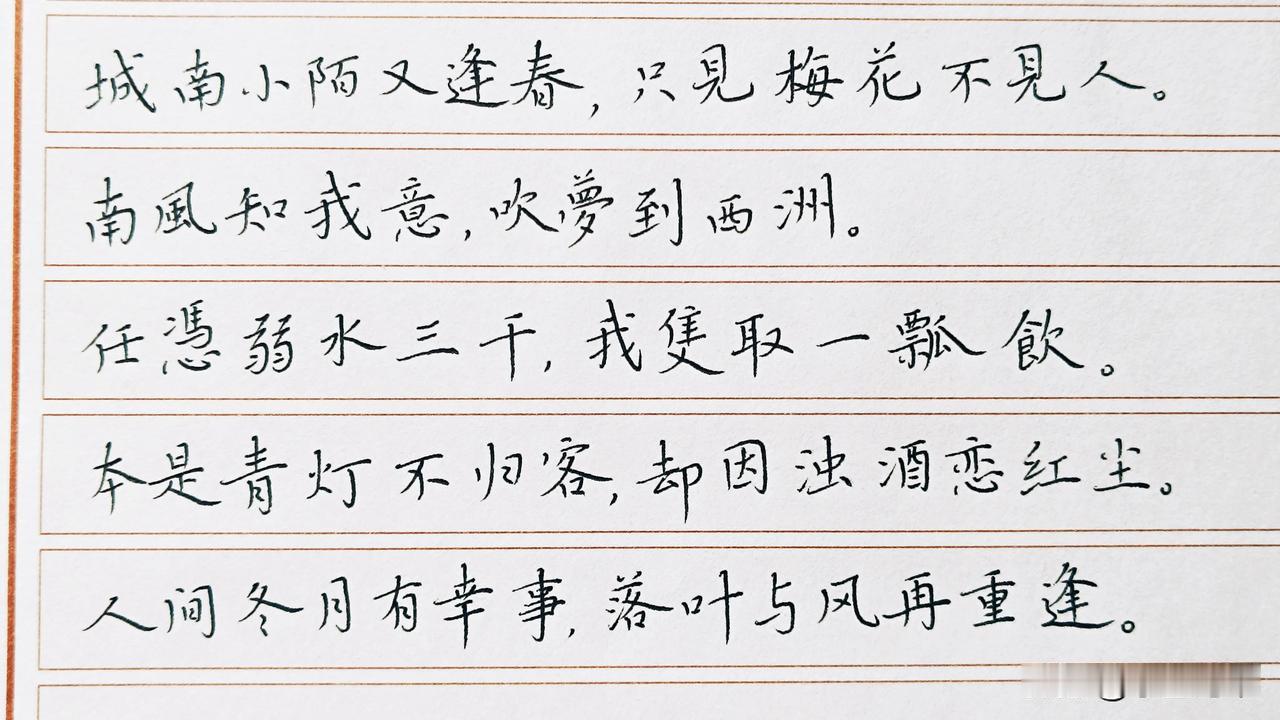 城南小陌又逢春,只见梅花不见人。
南風知我意,吹夢到西洲。
任憑弱水三千,我隻取一瓢飲。
本是青灯不归客,却因浊酒恋红尘。
人间冬月有幸事,落叶与风再重逢。